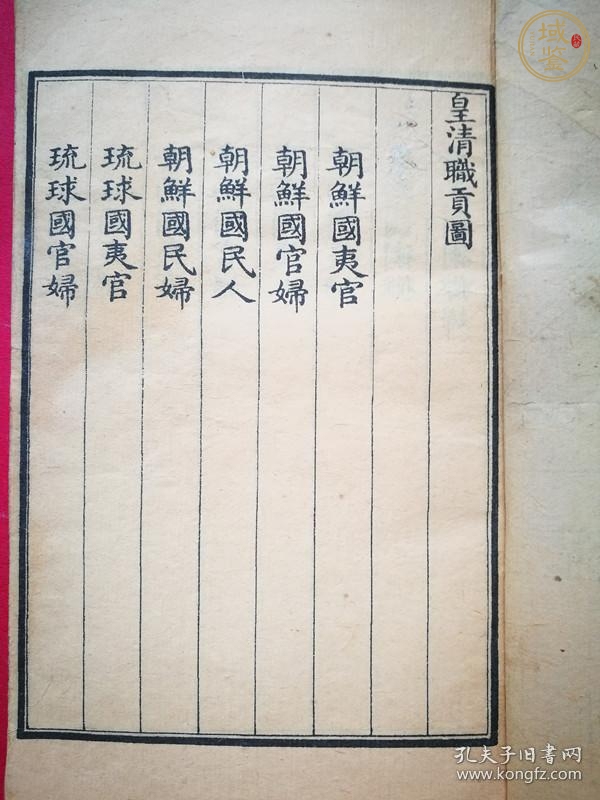 皇清職貢圖
朝鮮國夷官
朝鮮國官婦
朝鮮國民人
朝鮮國民婦
琉球國夷官
琉球國官婦
域鑒
孔夫子旧書网
www.kongfz.com